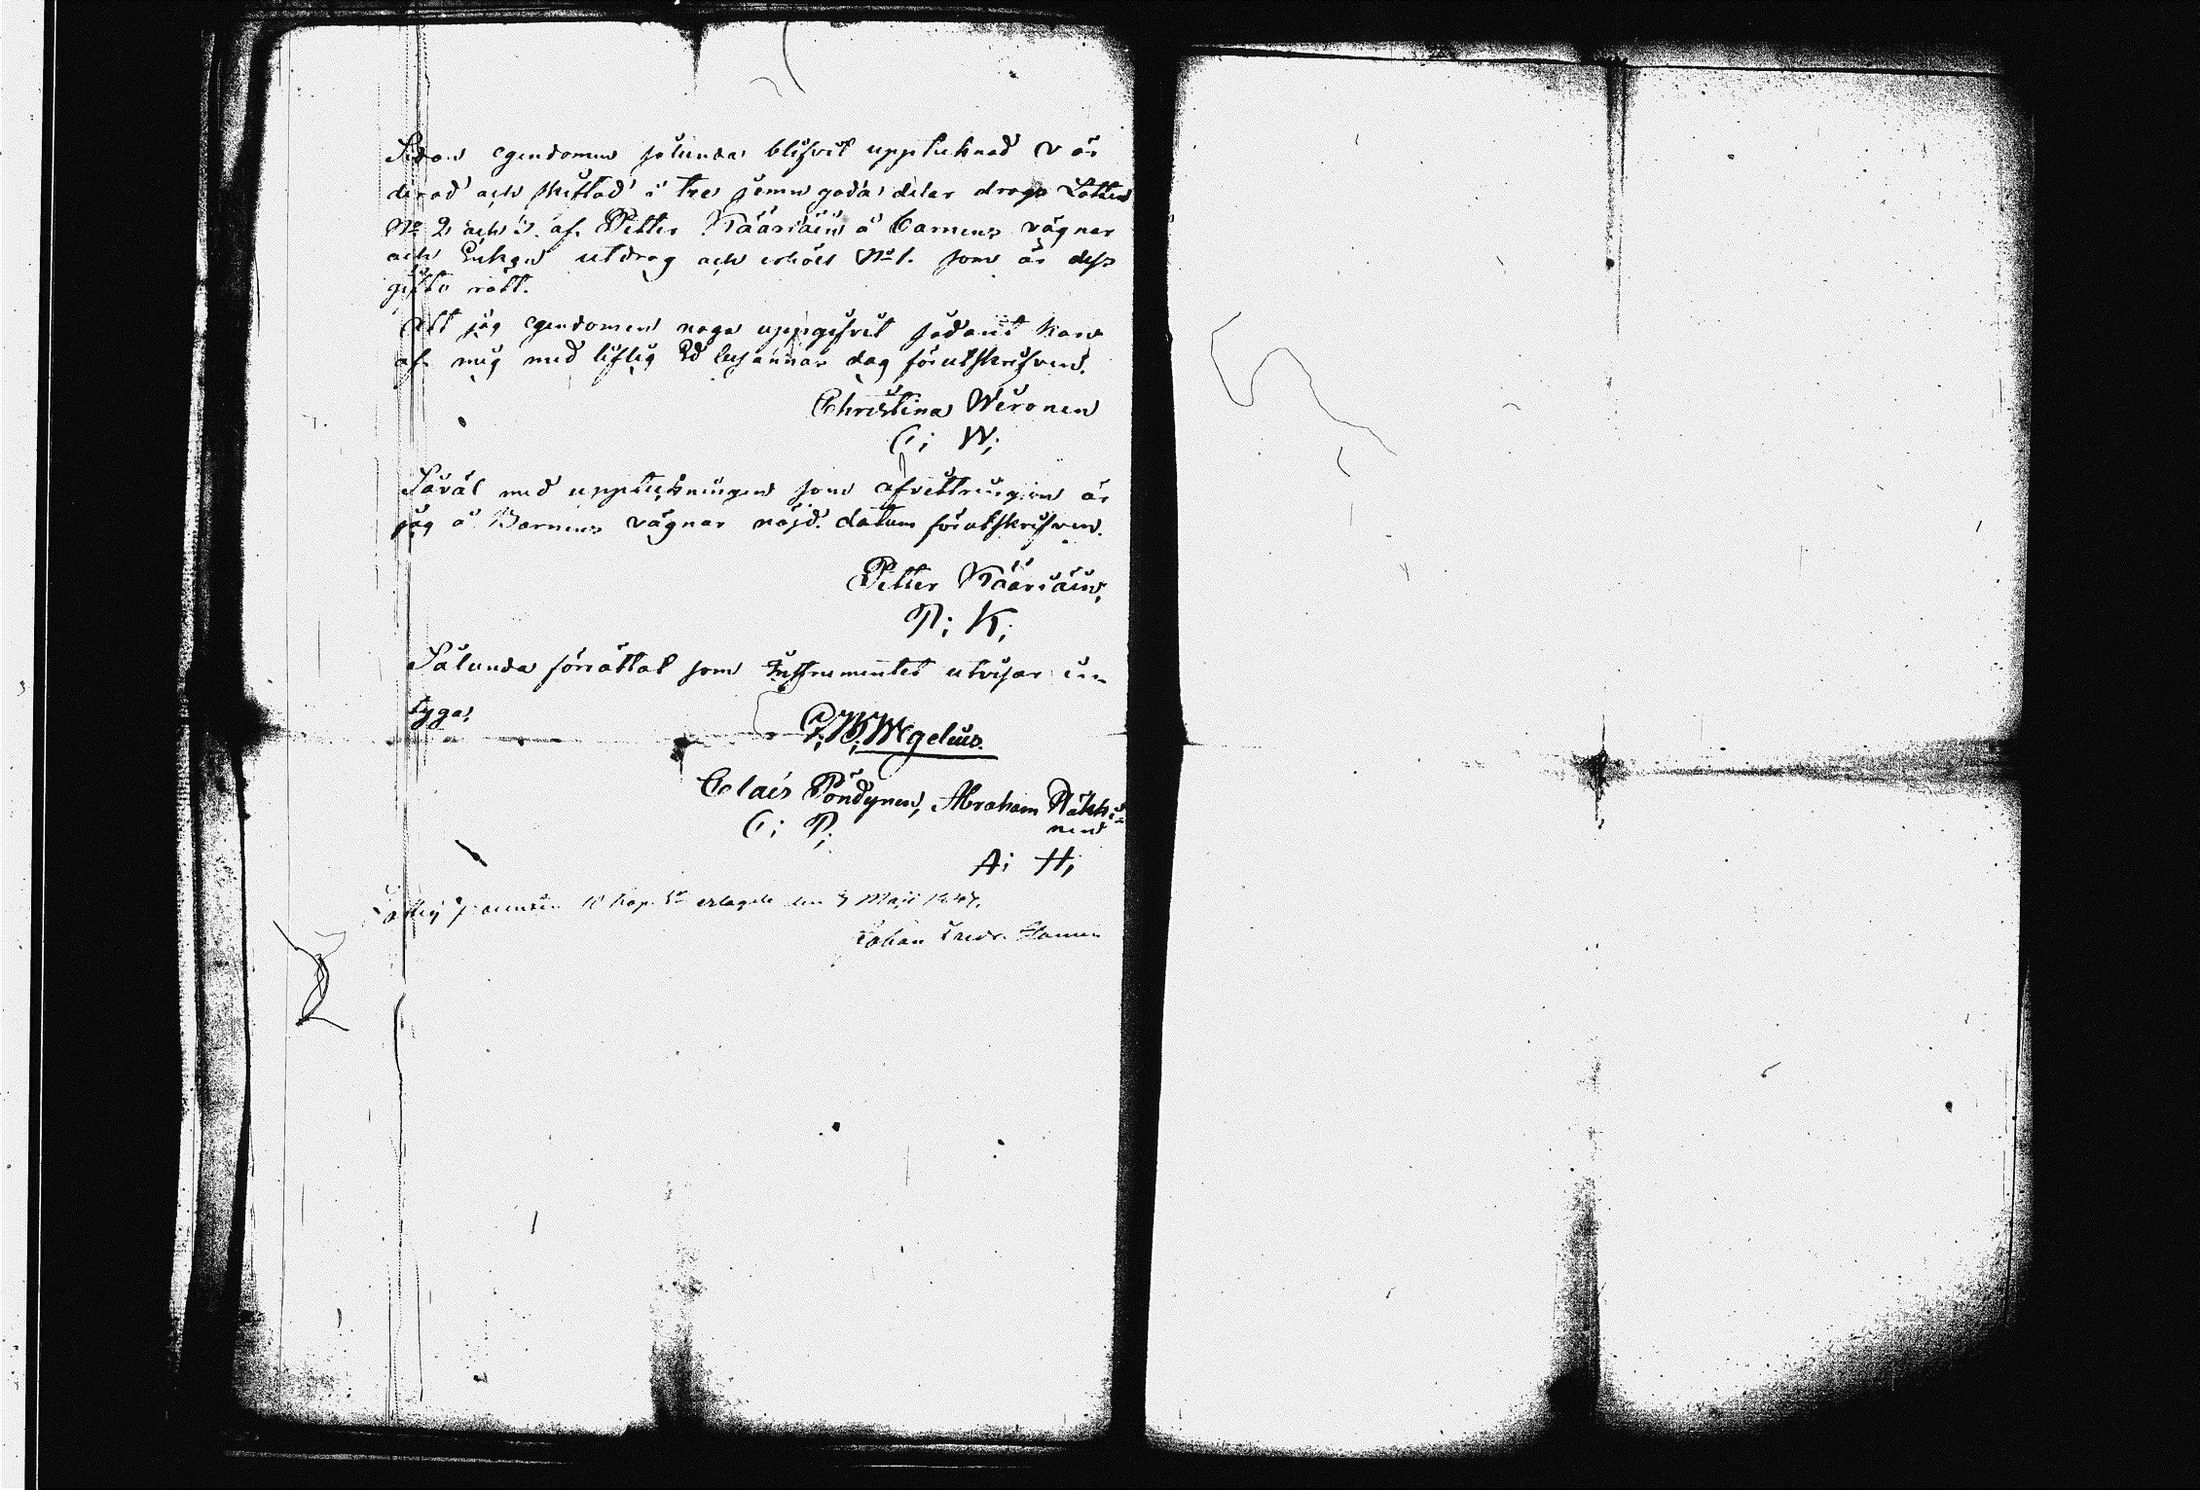 Sedan egendomen sålunda blifvit upptecknad vär
derad och skiftad i tre jemngoda delar drogs Lotten
No 2 och 3. af Petter Kääriäin å Barnens vägnar
och Enkan utdrog och erhölt No 1. som är dess
gifto rätt.
Att jag egendomen noga uppgifvit sådant kan
af mig med liflig Ed besannas dag förutskrifven.
Christina Weronen
C; W;
Såväl med uppteckningen som afvittringen är
jag å Barnens vägnar nöjd. datum förutskrifven.
Petter Kääriäin;
P; K;
Sålunda förrättat som Instrumentet utvisar in-
tygas
P; W; Wegelius.
Clais Pöndynen, Abraham
nen
C; P;
A; H;
10 Kop. Sr erlagde den 3 Maji
Johan Fredr.